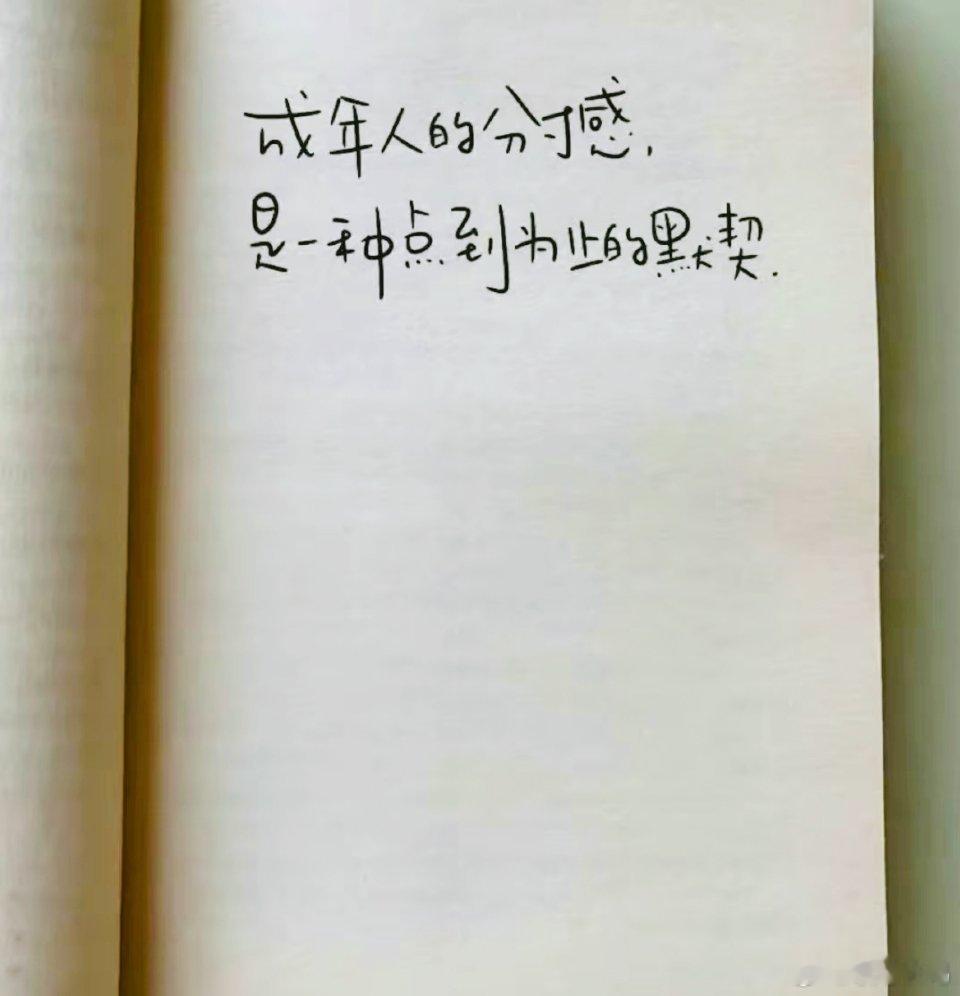 成年人的分寸感,
是一种点到为止的默契.